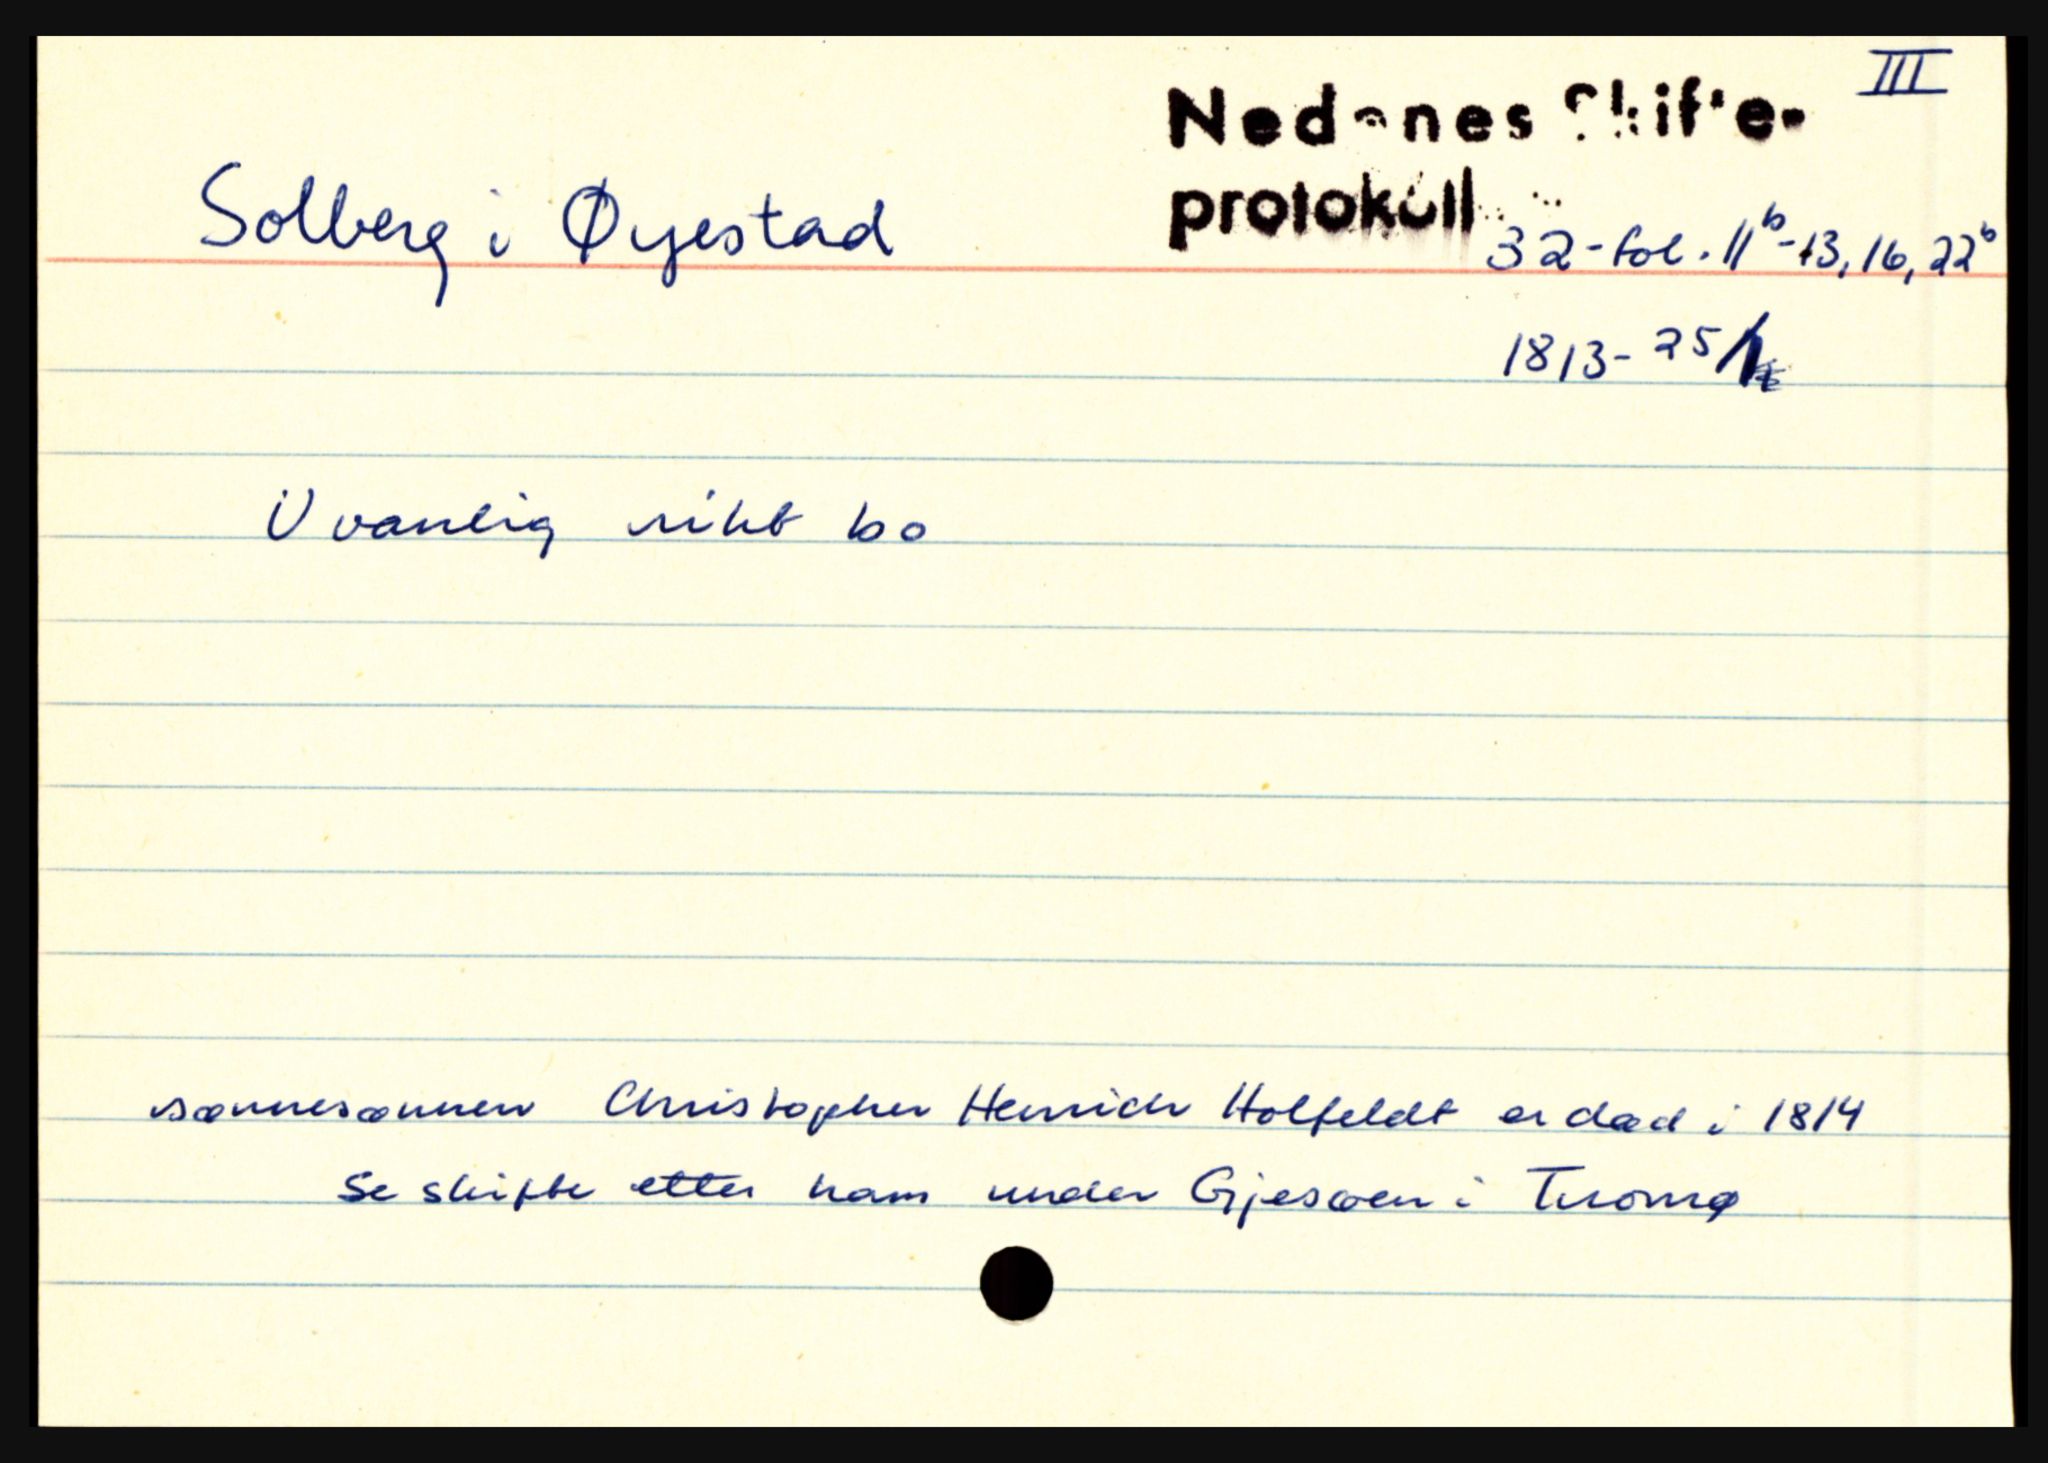 III
Nedenes Skifte-
protokoll
Solberg i Øyestad
32-fol. 11b-13, 16, 22b
1813- 25/
Uvanlig rikt bo
sønnesønnen Christopher Henrich Holfeldt er død i 1814
se skifte etter ham under Gjesøen i Tromø